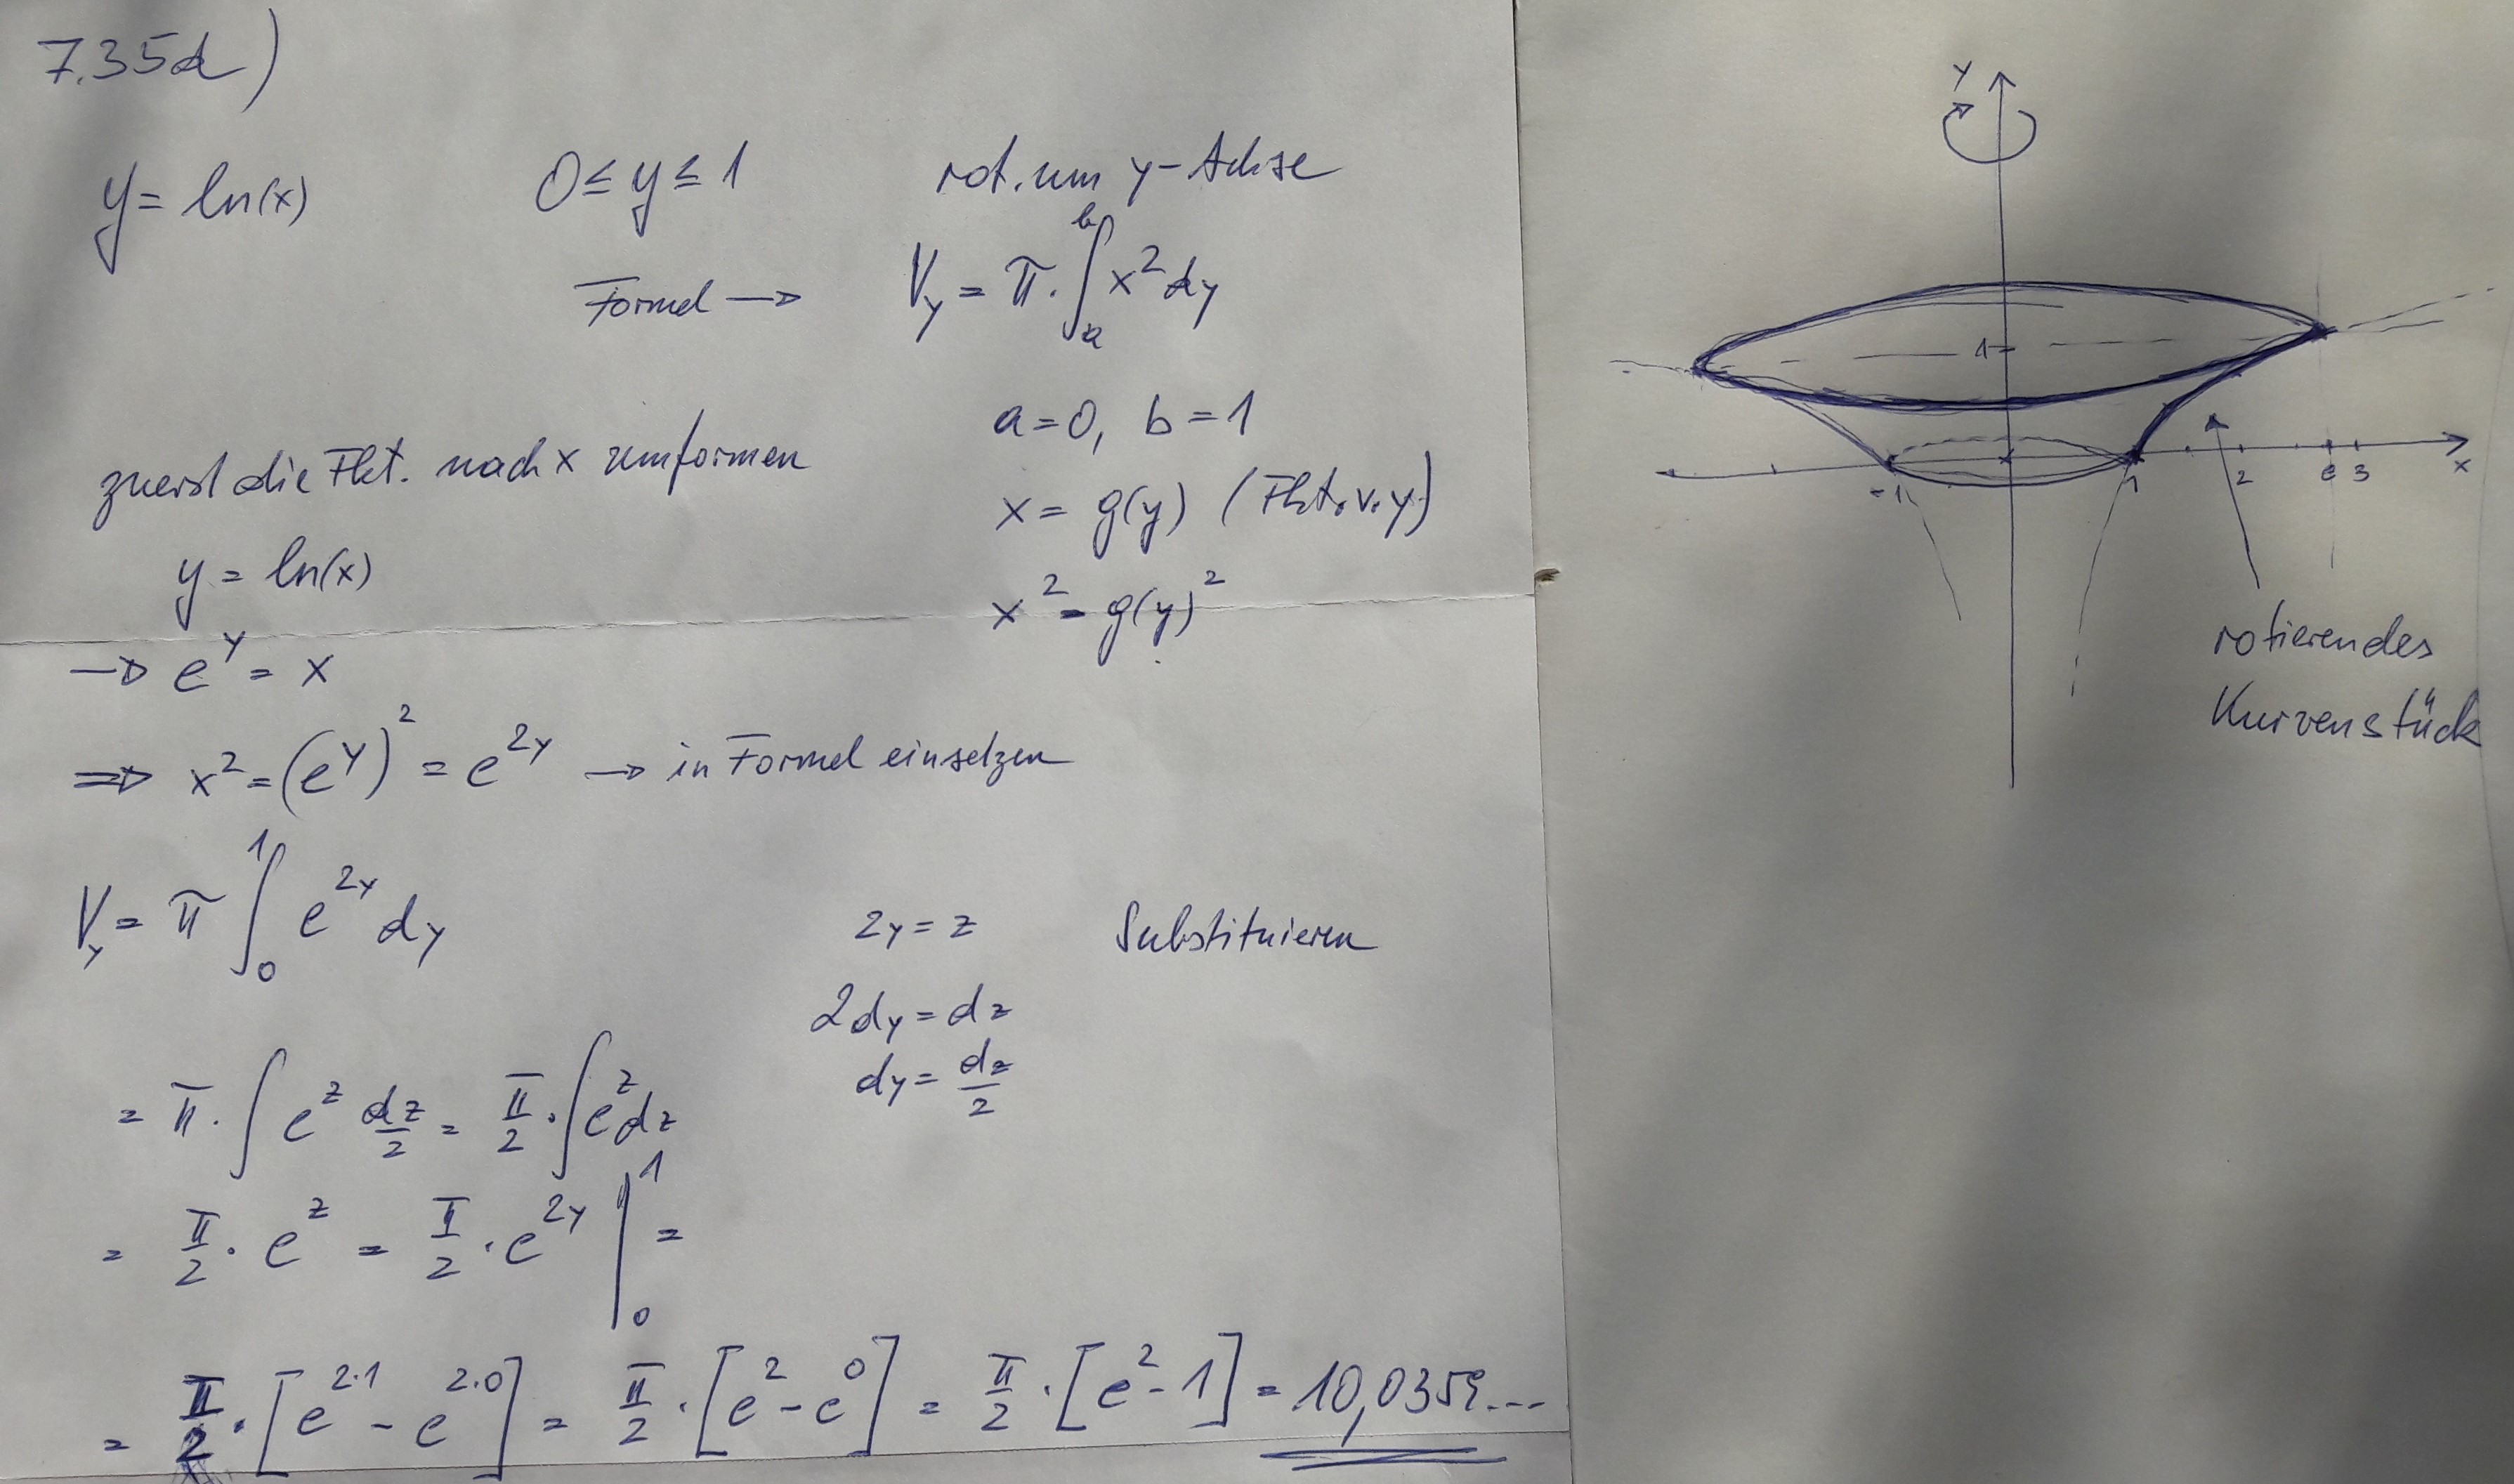 7.35d)
y = ln(x) 0 ≤ y ≤ 1 rot. um y-Achse
Formel → V_y = π · ∫_a^b x² dy
a = 0, b = 1
zuerst die Fkt. nach x umformen
x = g(y) (Fkt. v. y)
y = ln(x)
x² = g(y)²
→ e^y = x
⇒ x² = (e^y)² = e^{2y} → in Formel einsetzen
V_y = π ∫_0^1 e^{2y} dy 2y = z Substituieren
2dy = dz
dy = dz/2
= π · ∫ e^z dz/2 = π/2 · ∫ e^z dz
= π/2 · e^z = π/2 · e^{2y} |_0^1 =
= π/2 · [e^{2·1} - e^{2·0}] = π/2 · [e² - e⁰] = π/2 · [e² - 1] = 10,0359...
y
1
-1 1 2 e 3 x
rotierendes
Kurvenstück